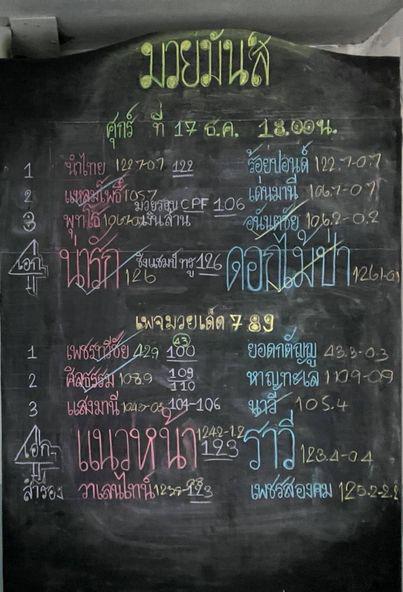 มวยมันส์
ศุกร์ ที่ 17 ธ.ค. 18.00น.
1 นำไทย 122.7-0.7 122 ร้อยปอนด์ 122.7-0.7
2 แหลมโพธิ์ 105.7 เด่นมานี 106.7-0.7
มวยรอบ CPF 106
3 พุทโธ เงินล้าน อนันตชัย 106.2-0.2
เอก น่ารัก 126 ชิงแชมป์ ทรู 126 ดอกไม้ป่า 126.1-0.1
เพจมวยเด็ด 789
1 เพชรทวีชัย 42.9 (43) 100 ยอดกตัญญู 43.3-0.3
2 ศีลธรรม 108.9 109 110 หาญทะเล 110.9-0.9
3 แสงมานี 104-106 นาวี 105.4
เอก แนวหน้า 124.2-1.2 123 ราวี่ 123.4-0.4
สำรอง วาเลนไทน์ 123 เพชรสองคม 125.2-2.2